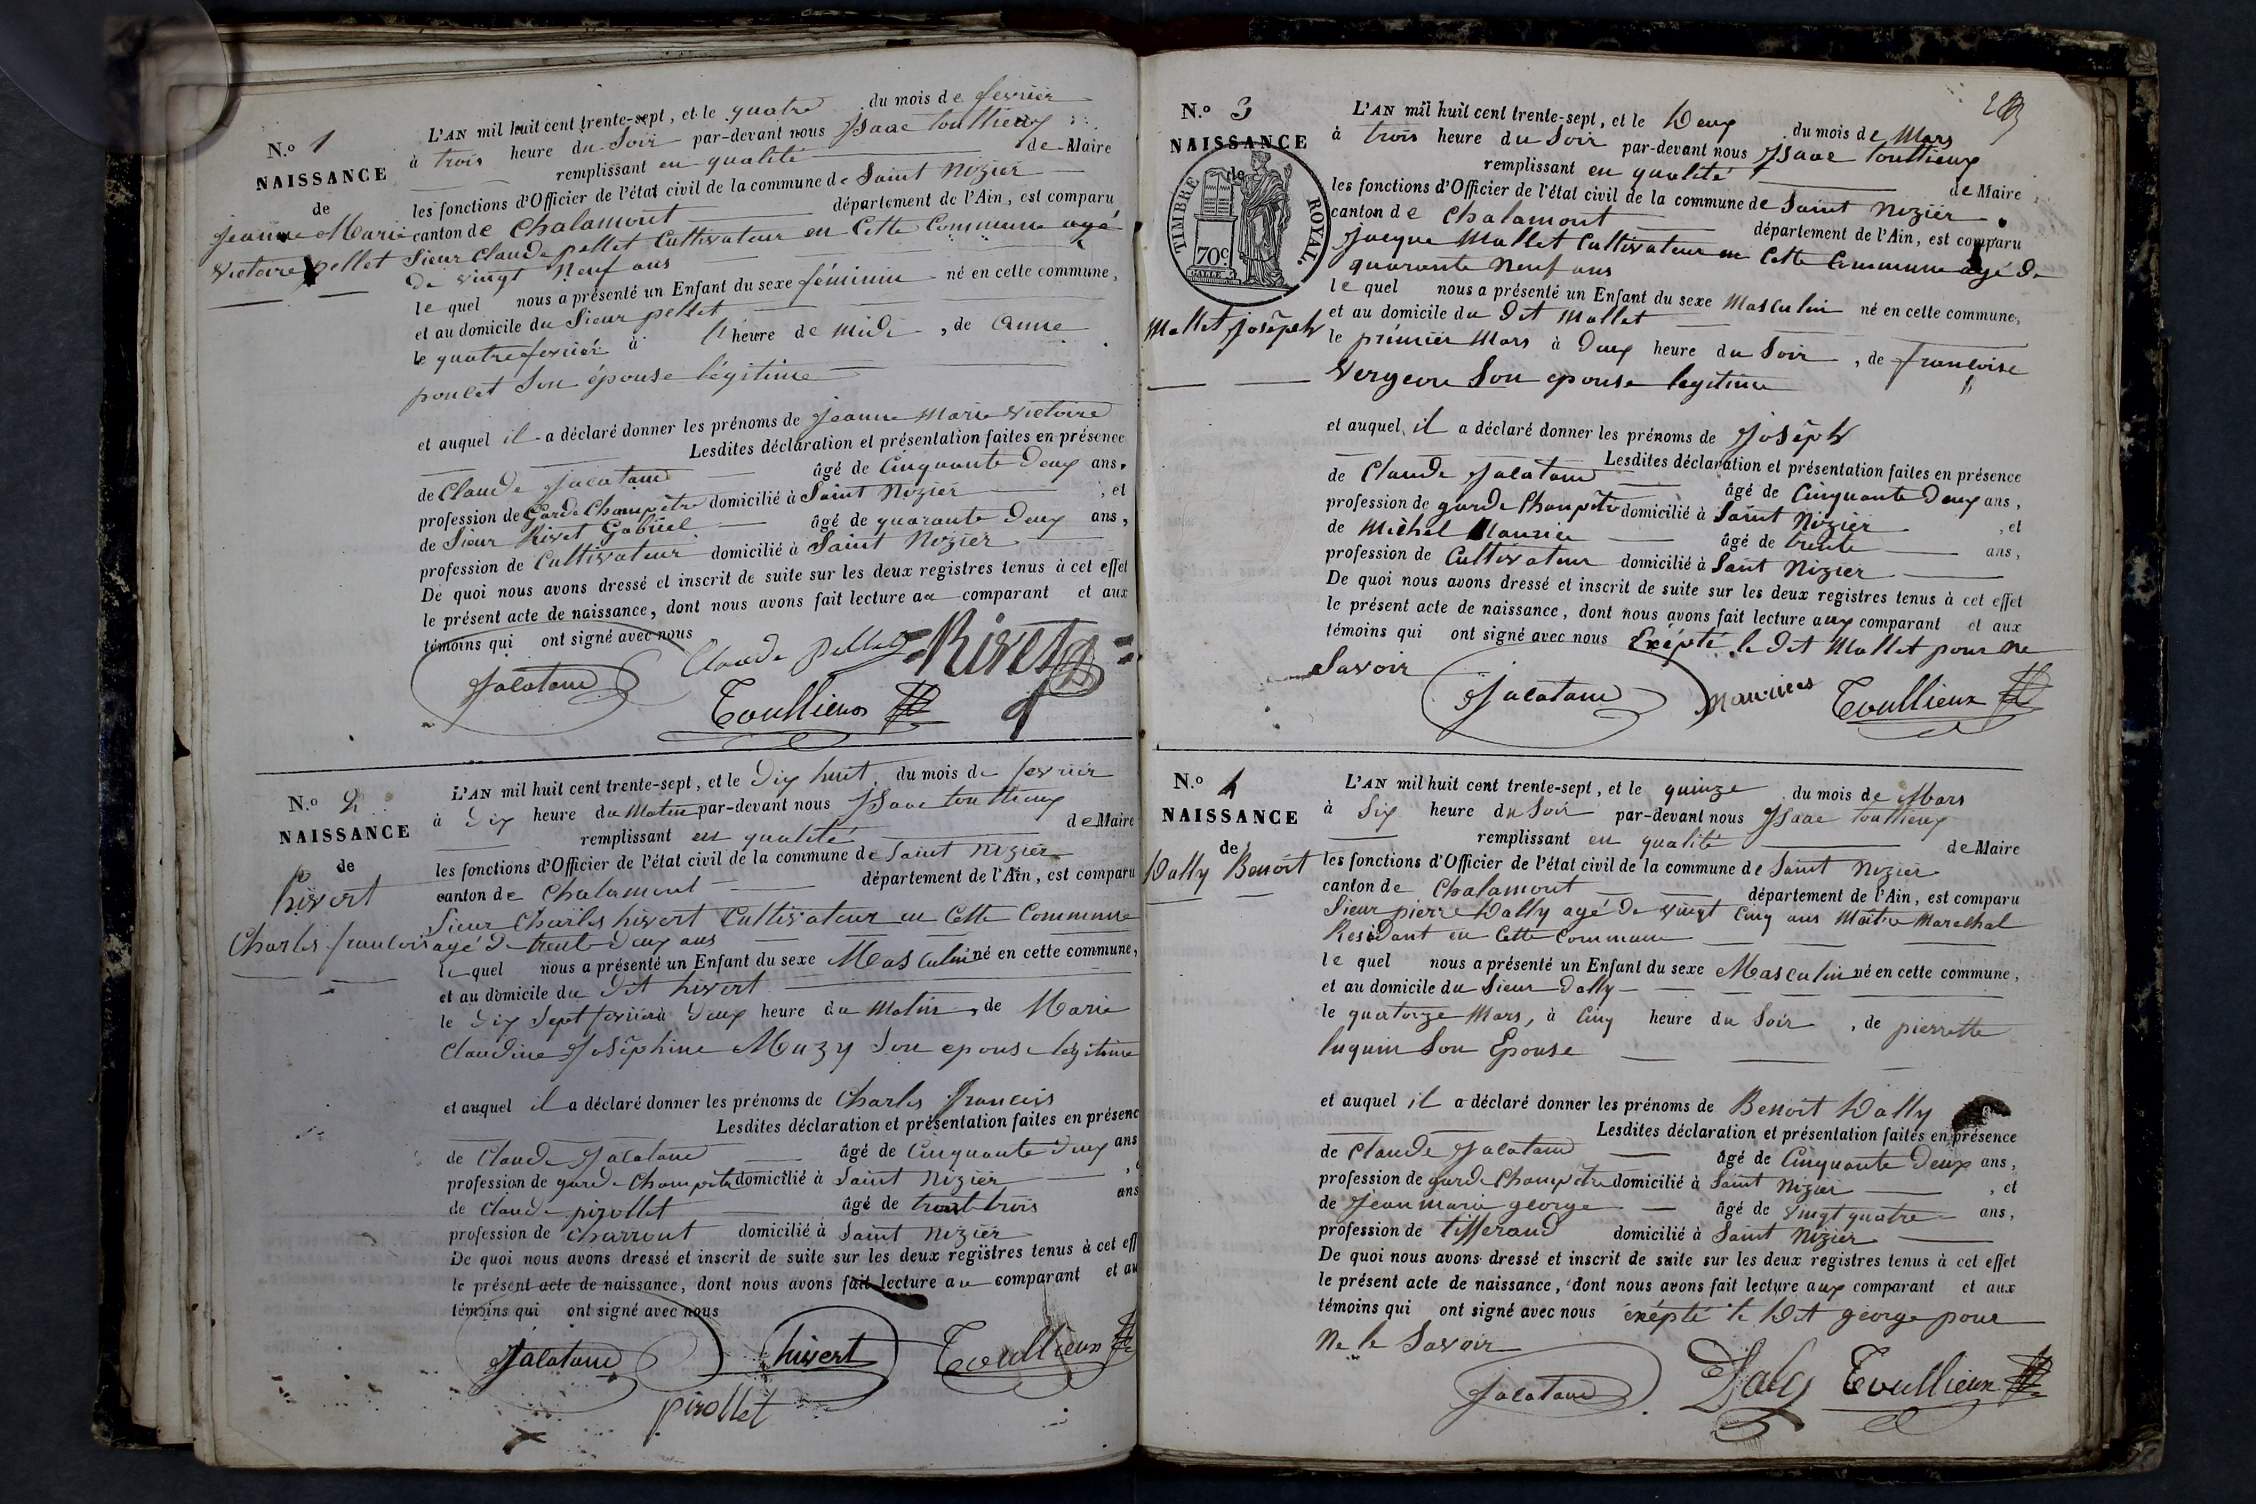 N.º 1
NAISSANCE
de
Jeanne Marie
Victoire pellet
L'AN mil huit cent trente-sept, et le quatre du mois de fevrier
à trois heure du Soir par-devant nous Isaac toullieux
remplissant en qualité de Maire
les fonctions d'Officier de l'état civil de la commune de Saint Nizier
canton de Chalamont département de l'Ain, est comparu
Sieur Claude pellet Cultivateur en Cette Commune agé
De vingt Neuf ans
le quel nous a présenté un Enfant du sexe féminin né en cette commune,
et au domicile du Sieur pellet
le quatre fevrier à l'heure de midi, de anne
poulet Son épouse légitime
et auquel il a déclaré donner les prénoms de Jeanne Marie Victoire
Lesdites déclaration et présentation faites en présence
de Claude Jacatane âgé de Cinquante Deux ans,
profession de Garde Champêtre domicilié à Saint Nizier, et
de Sieur Rivet Gabriel âgé de quarante Deux ans,
profession de Cultivateur domicilié à Saint Nizier
De quoi nous avons dressé et inscrit de suite sur les deux registres tenus à cet effet
le présent acte de naissance, dont nous avons fait lecture au comparant et aux
témoins qui ont signé avec nous
Claude Pellet Rivet
Jacatane
Toullieux
N.º 2
NAISSANCE
de
hivert
Charles francois
L'AN mil huit cent trente-sept, et le Dix huit du mois de fevrier
à Dix heure du Matin par-devant nous Isaac toullieux
remplissant en qualité de Maire
les fonctions d'Officier de l'état civil de la commune de Saint Nizier
canton de Chalamont département de l'Ain, est comparu
Sieur Charles hivert Cultivateur en Cette Commune
agé De trente Deux ans
le quel nous a présenté un Enfant du sexe Masculin né en cette commune,
et au domicile du Dit hivert
le Dix Sept fevrier à Deux heure du Matin, de Marie
Claudine Joséphine Muzy Son epouse légitime
et auquel il a déclaré donner les prénoms de Charles francois
Lesdites déclaration et présentation faites en présenc
de Claude Jacatane âgé de Cinquante Deux ans
profession de garde Champêtre domicilié à Saint Nizier
de Claude pirollet âgé de trente trois ans
profession de Charront domicilié à Saint Nizier
De quoi nous avons dressé et inscrit de suite sur les deux registres tenus à cet eff
le présent acte de naissance, dont nous avons fait lecture au comparant et au
témoins qui ont signé avec nous
Jacatane hivert Toullieux
pirollet
N.º 3
NAISSANCE
de
TIMBRE ROYAL.
70c.
Mallet Joseph
L'AN mil huit cent trente-sept, et le Deux du mois de Mars
à trois heure du Soir par-devant nous Isaac toullieux
remplissant en qualité de Maire
les fonctions d'Officier de l'état civil de la commune de Saint Nizier
canton de Chalamont département de l'Ain, est comparu
Jacque Mallet Cultivateur en Cette Commune agé de
quarante Neuf ans
le quel nous a présenté un Enfant du sexe Masculin né en cette commune,
et au domicile du Dit Mallet
le prémier Mars à Deux heure du Soir, de francoise
Vergeon Son epouse legitime
et auquel il a déclaré donner les prénoms de Joseph
Lesdites déclaration et présentation faites en présence
de Claude Jacatane âgé de Cinquante Deux ans,
profession de garde Champêtre domicilié à Saint Nizier, et
de Michel Maurice âgé de trente ans,
profession de Cultivateur domicilié à Saint Nizier
De quoi nous avons dressé et inscrit de suite sur les deux registres tenus à cet effet
le présent acte de naissance, dont nous avons fait lecture aux comparant et aux
témoins qui ont signé avec nous Exépté le Dit Mallet pour ne
Savoir
Jacatane Toullieux
N.º 4
NAISSANCE
de
Dally Benoit
L'AN mil huit cent trente-sept, et le quinze du mois de Mars
à Six heure du Soir par-devant nous Isaac toullieux
remplissant en qualité de Maire
les fonctions d'Officier de l'état civil de la commune de Saint Nizier
canton de Chalamont département de l'Ain, est comparu
Sieur pierre Dally agé De vingt Cinq ans Maître Marechal
Residant en Cette Commune
le quel nous a présenté un Enfant du sexe Masculin né en cette commune,
et au domicile du Sieur Dally
le quatorze Mars, à Cinq heure du Soir, de pierrette
luquin Son Epouse
et auquel il a déclaré donner les prénoms de Benoit Dally
Lesdites déclaration et présentation faites en présence
de Claude Jacatane âgé de Cinquante Deux ans,
profession de garde Champêtre domicilié à Saint Nizier, et
de Jean marie george âgé de vingt quatre ans,
profession de tifferand domicilié à Saint Nizier
De quoi nous avons dressé et inscrit de suite sur les deux registres tenus à cet effet
le présent acte de naissance, dont nous avons fait lecture aux comparant et aux
témoins qui ont signé avec nous exépté le Dit george pour
Ne le Savoir
Jacatane Daly Toullieux